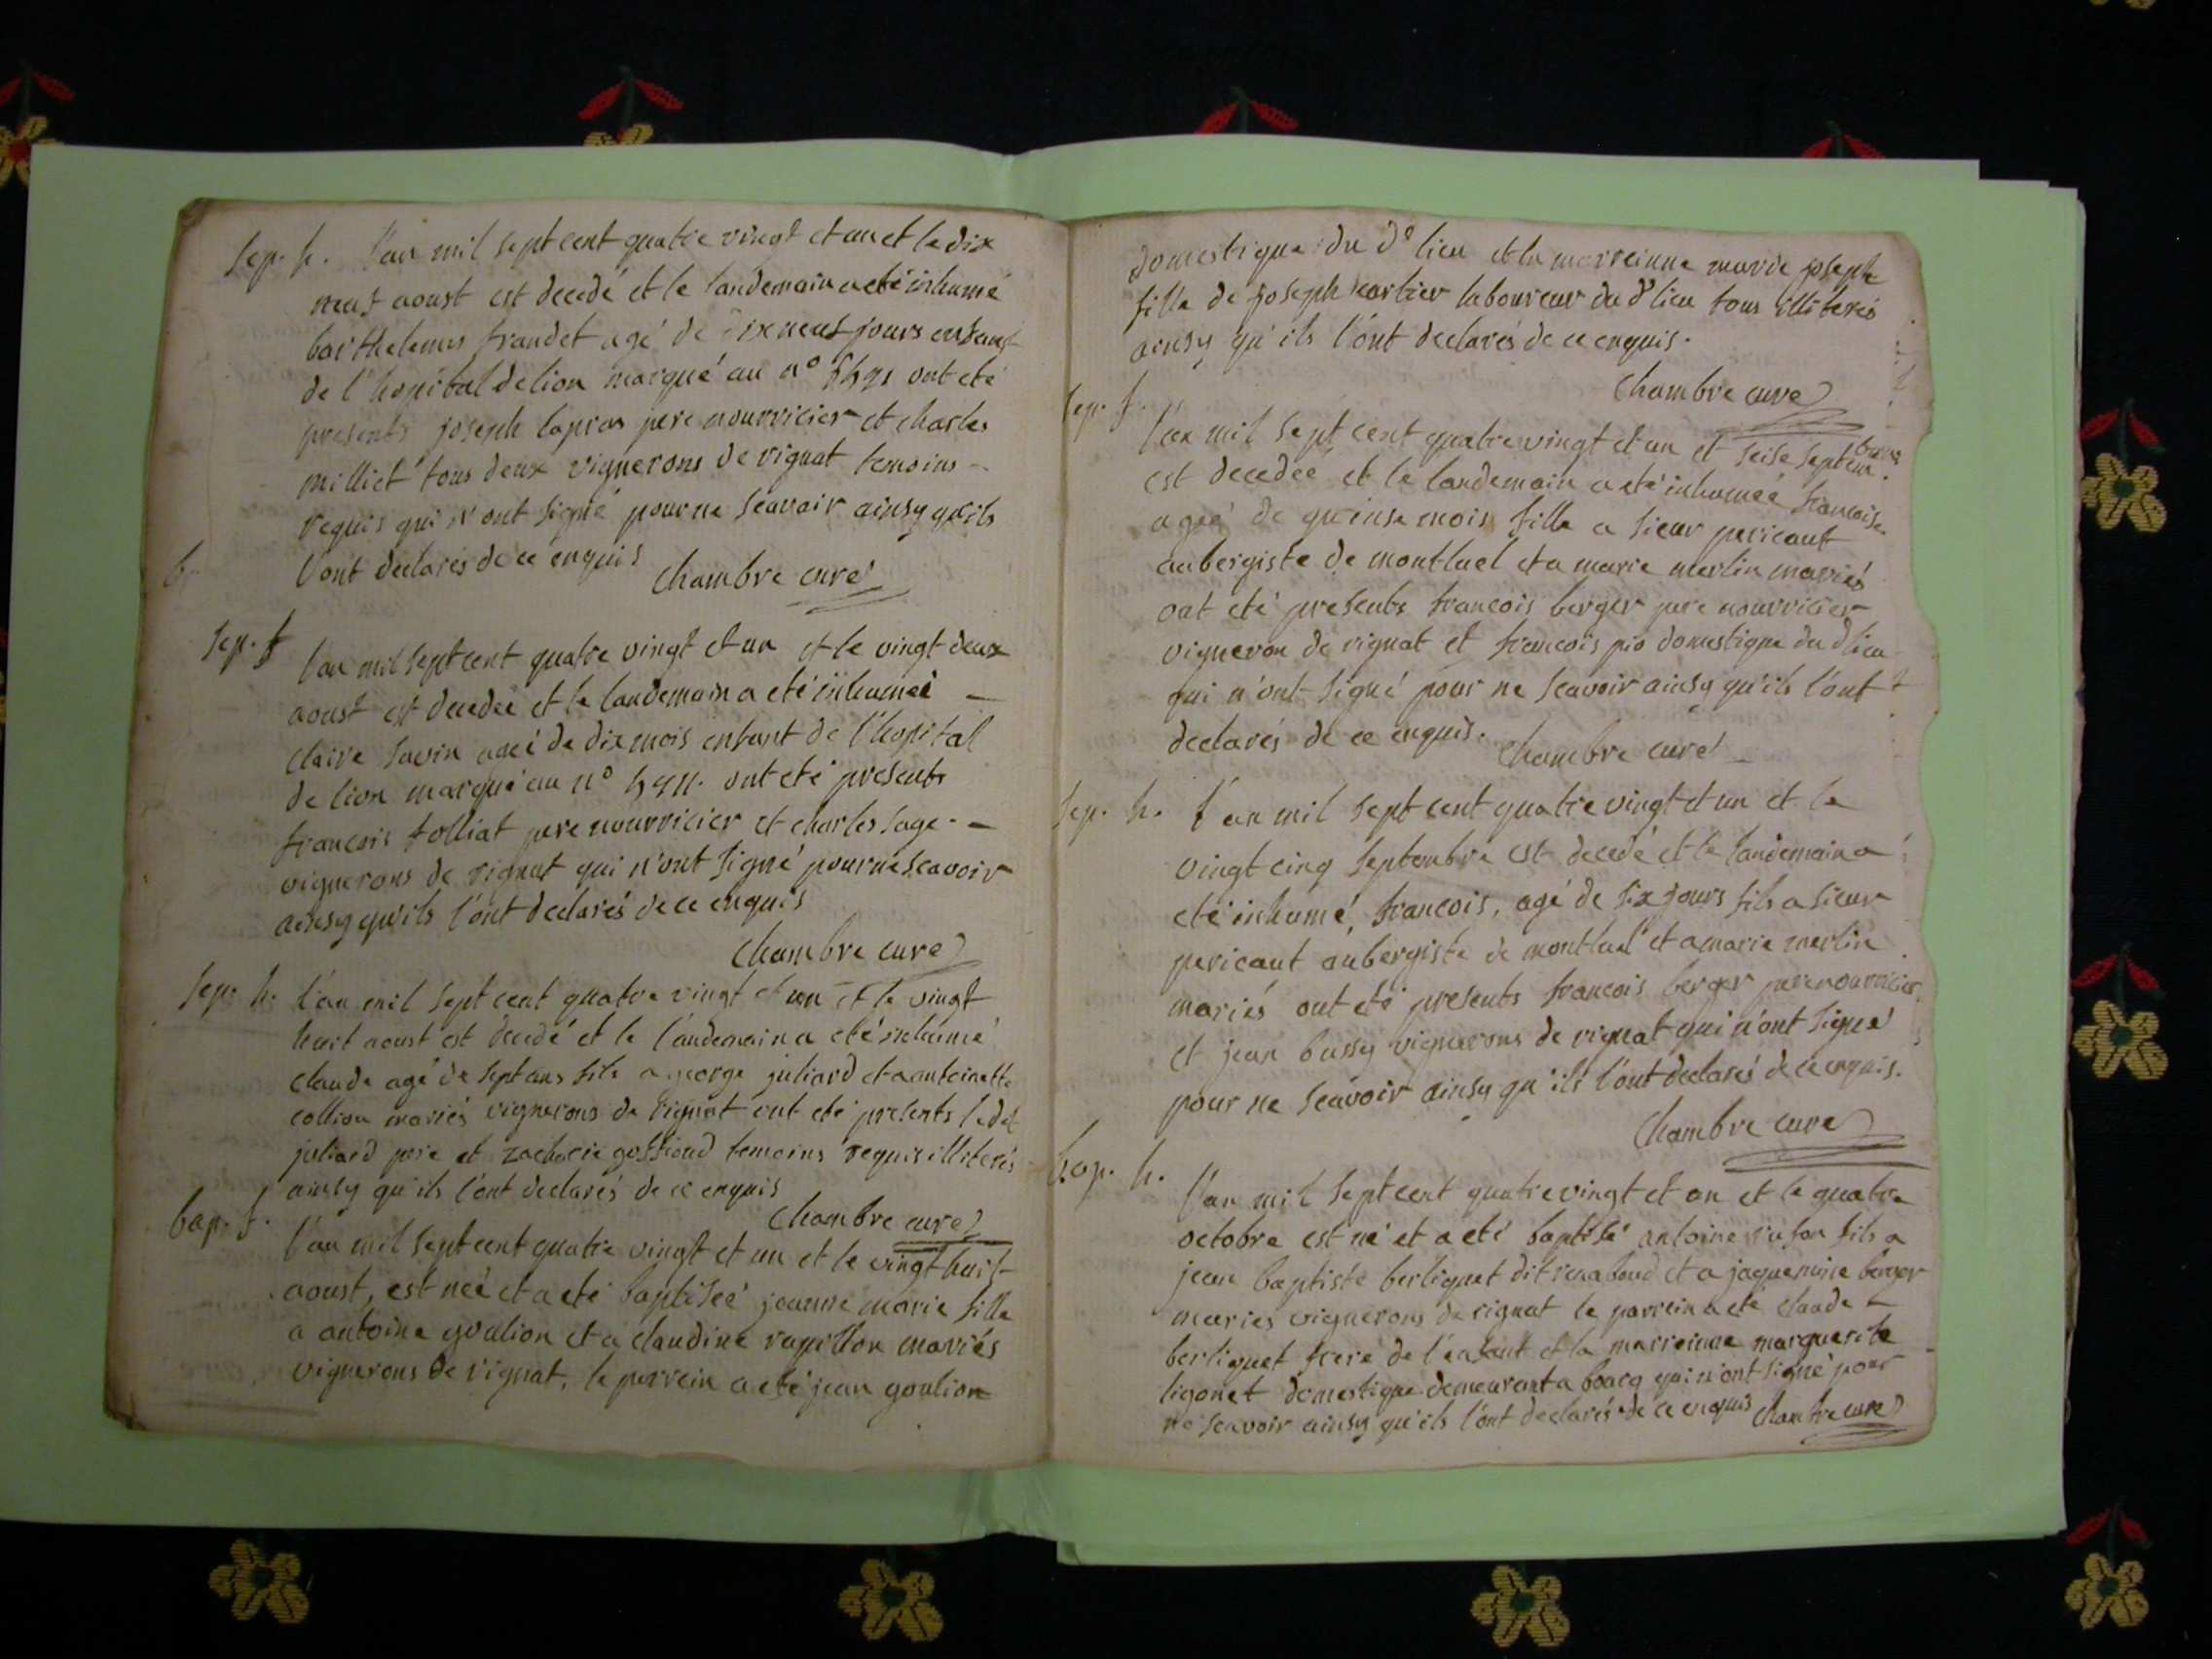 Sep. h. l'an mil sept cent quatre vingt et un et le dix
neuf aoust est decedé et le landemain a eté inhumé
barthelemis frandet agé de dix neuf jours enfant
de l'hopital de lion marqué au n° ont eté
presents joseph lapras pere nourricier et charles
milliet tous deux vignerons de rignat temoins -
requis qui n'ont signé pour ne scavoir ainsy qu'ils
l'ont declarés de ce enquis
chambre curé
Sep. f l'an mil sept cent quatre vingt et un et le vingt deux
aoust est decedeé et le landemain a eté inhumeé -
claire savin ageé de dix mois enfant de l'hopital
de lion marqué au n° ont eté presents
francois folliat pere nourricier et charles sage -
vignerons de rignat qui n'ont signé pour ne scavoir
ainsy qu'ils l'ont declarés de ce enquis
chambre curé
Sep. h. l'an mil sept cent quatre vingt et un et le vingt
huit aoust est decedé et le l'andemain a eté inhumé
claude agé de sept ans fils a george juliard et a antoinette
collion mariés vignerons de rignat ont eté presents ledt
juliard pere et zacharie goffiond temoins requis illiterés
ainsy qu'ils l'ont declarés de ce enquis
chambre curé
bap. f. l'an mil sept cent quatre vingt et un et le vingt huit
aoust, est neé et a eté baptiseé jeanne marie fille
a antoine goulion et a claudine rapillon mariés
vignerons de rignat, le parrein a eté jean goulion
domestique du dt lieu et la marreinne marie joseph
fille de joseph cartier laboureur du dt lieu tous illiterés
ainsy qu'ils l'ont declarés de ce enquis.
chambre curé
sep. f. l'an mil sept cent quatre vingt et un et seise septembre
est decedeé et le landemain a eté inhumeé francoise
ageé de quinse mois fille a sieur pericaut
aubergiste de montluel et a marie merlin mariés
ont eté presents francois berger pere nourricier
vigneron de rignat et francois pio domestique du d lieu
qui n'ont signé pour ne scavoir ainsy qu'ils l'ont
declarés de ce enquis.
chambre curé
sep. h. l'an mil sept cent quatre vingt et un et le
vingt cinq septembre est decedé et le landemain a
eté inhumé, francois, agé de six jours fils a sieur
pericaut aubergiste de montluel et a marie merlin
mariés ont eté presents francois berger pere nourricier
et jean bussy vignerons de rignat qui n'ont signé
pour ne scavoir ainsy qu'ils l'ont declarés de ce enquis.
chambre curé
bap. h. l'an mil sept cent quatre vingt et un et le quatre
octobre est né et a eté baptisé antoine fils a
jean baptiste berliquet dit renaboud et a jaquemine berger
mariés vignerons de rignat le parrein a eté claude -
berliquet frere de l'enfant et la marreinne marguerite
ligonet domestique demeurant a bourg qui n'ont signé pour
ne scavoir ainsy qu'ils l'ont declarés de ce enquis chambre curé